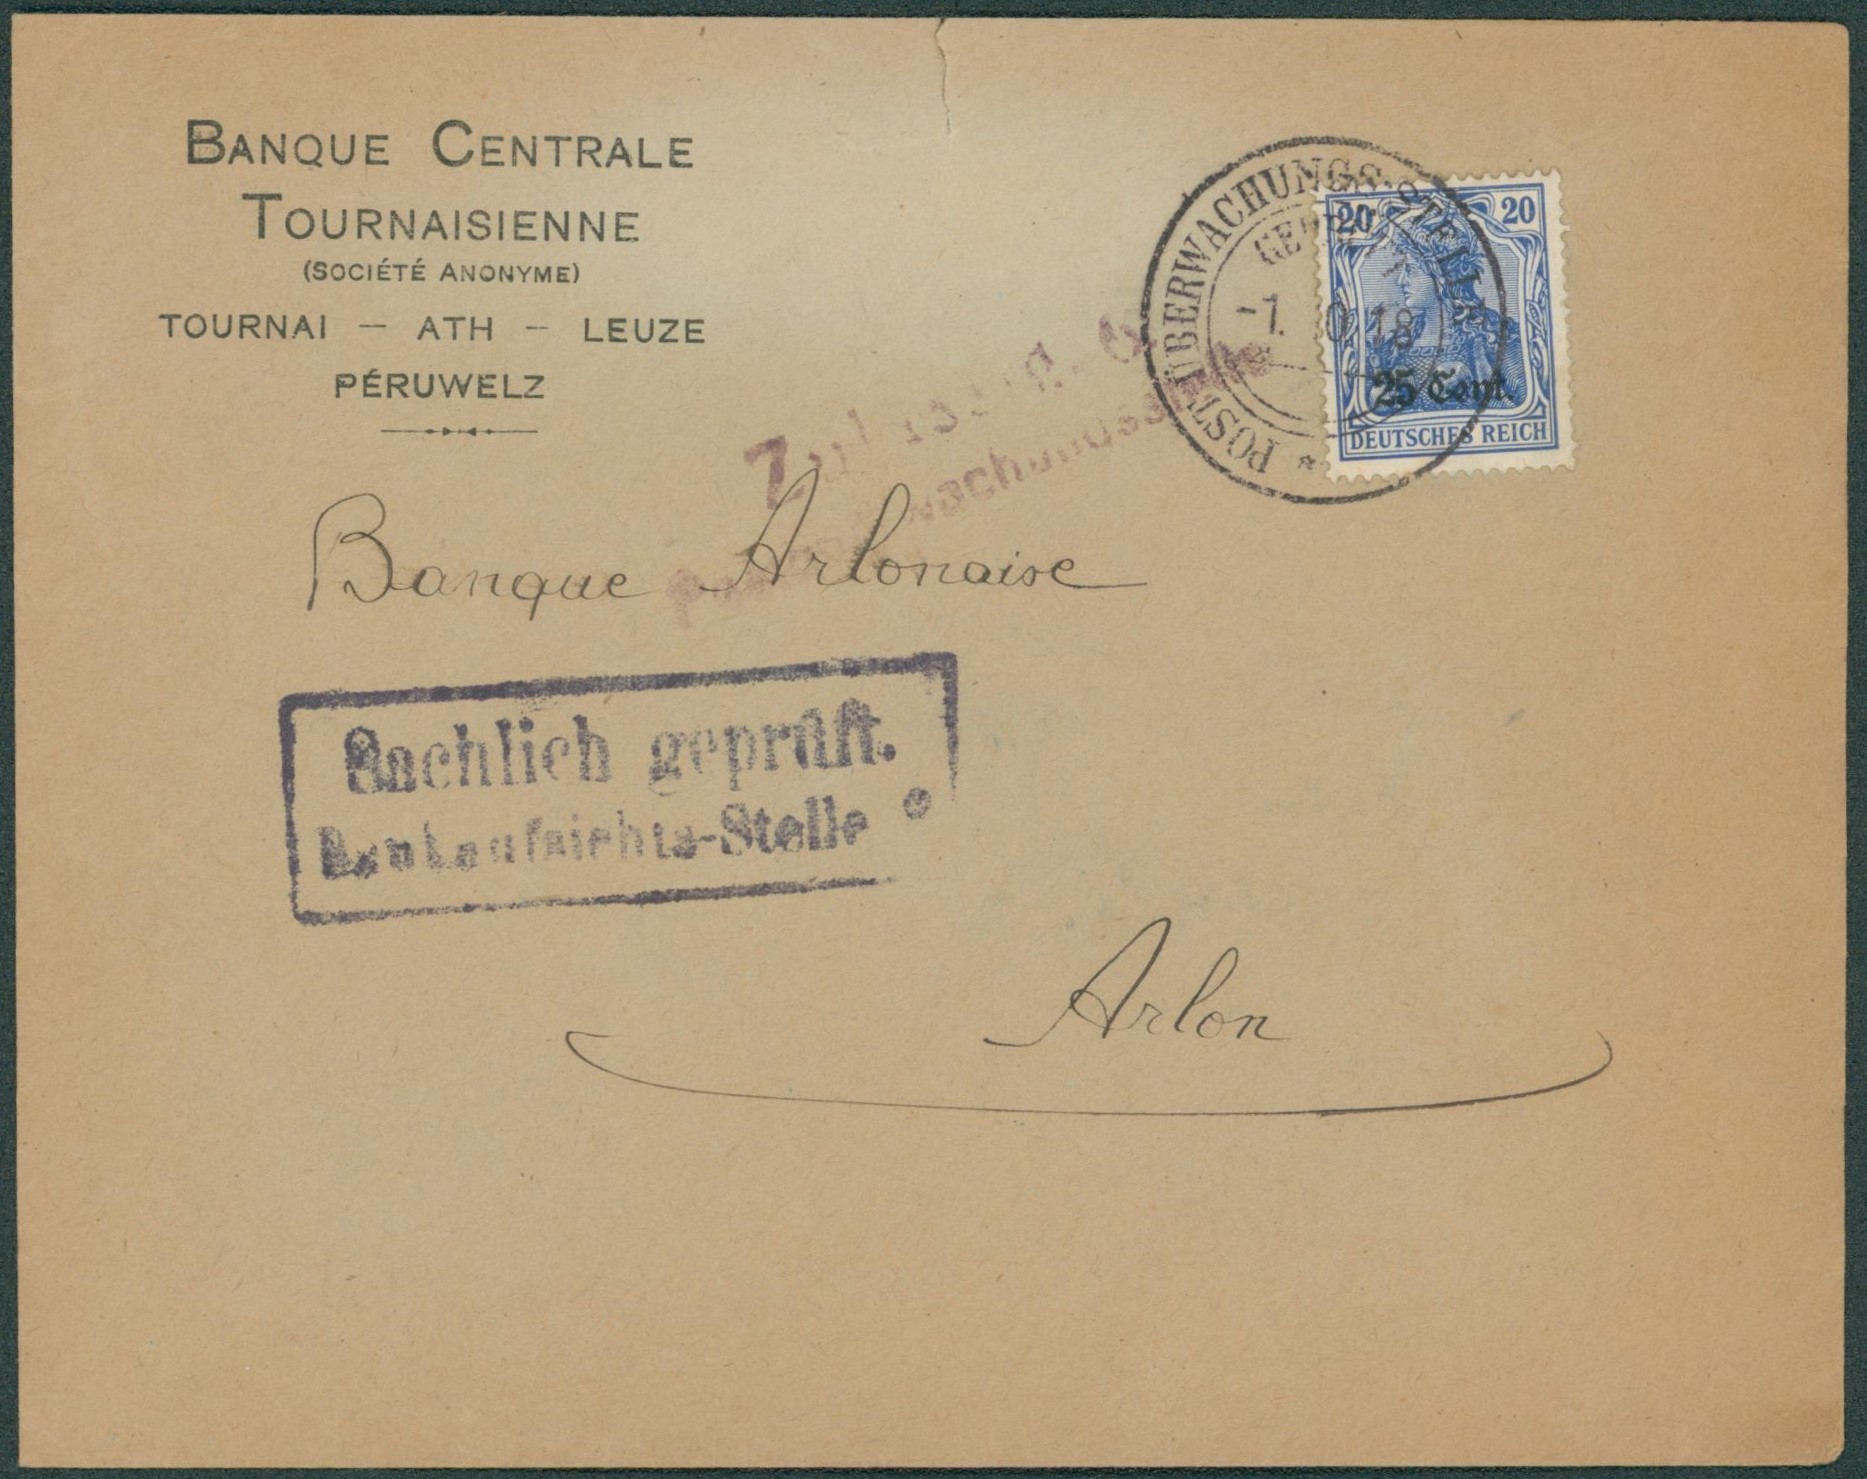 BANQUE CENTRALE
TOURNAISIENNE
(SOCIÉTÉ ANONYME)
TOURNAI — ATH — LEUZE
PÉRUWELZ
POSTÜBERWACHUNGS-STELLE
-7. 18
20 20
25 Cent.
DEUTSCHES REICH
Banque Arlonaise
Sachlich geprüft.
Bankaufsichts-Stelle
Arlon